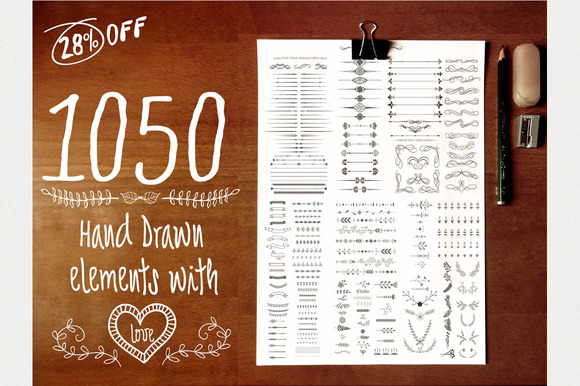 28% OFF
1050
Hand Drawn
elements with
Love